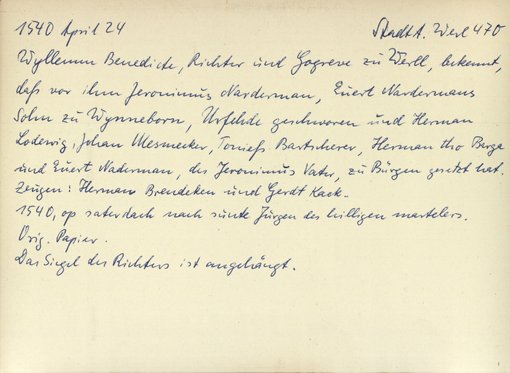 1540 April 24 StadtA. Werl 470
Wyllemm Benedicte, Richter und Gogreve zu Werll, bekennt,
daß vor ihm Jeronimus Narderman, Evert Nardermans
Sohn zu Wynneborn, Urfehde geschworen und Herman
Lodewig, Johan Mesmecker, Tonieß Bartscherer, Herman tho Berga
und Evert Naderman, des Jeronimus Vater, zu Bürgen gesetzt hat.
Zeugen: Herman Brendeken und Gerdt Kack.
1540, op saterdach nach sunte Jürgen des hilligen martelers.
Orig. Papier.
Das Siegel des Richters ist angehängt.